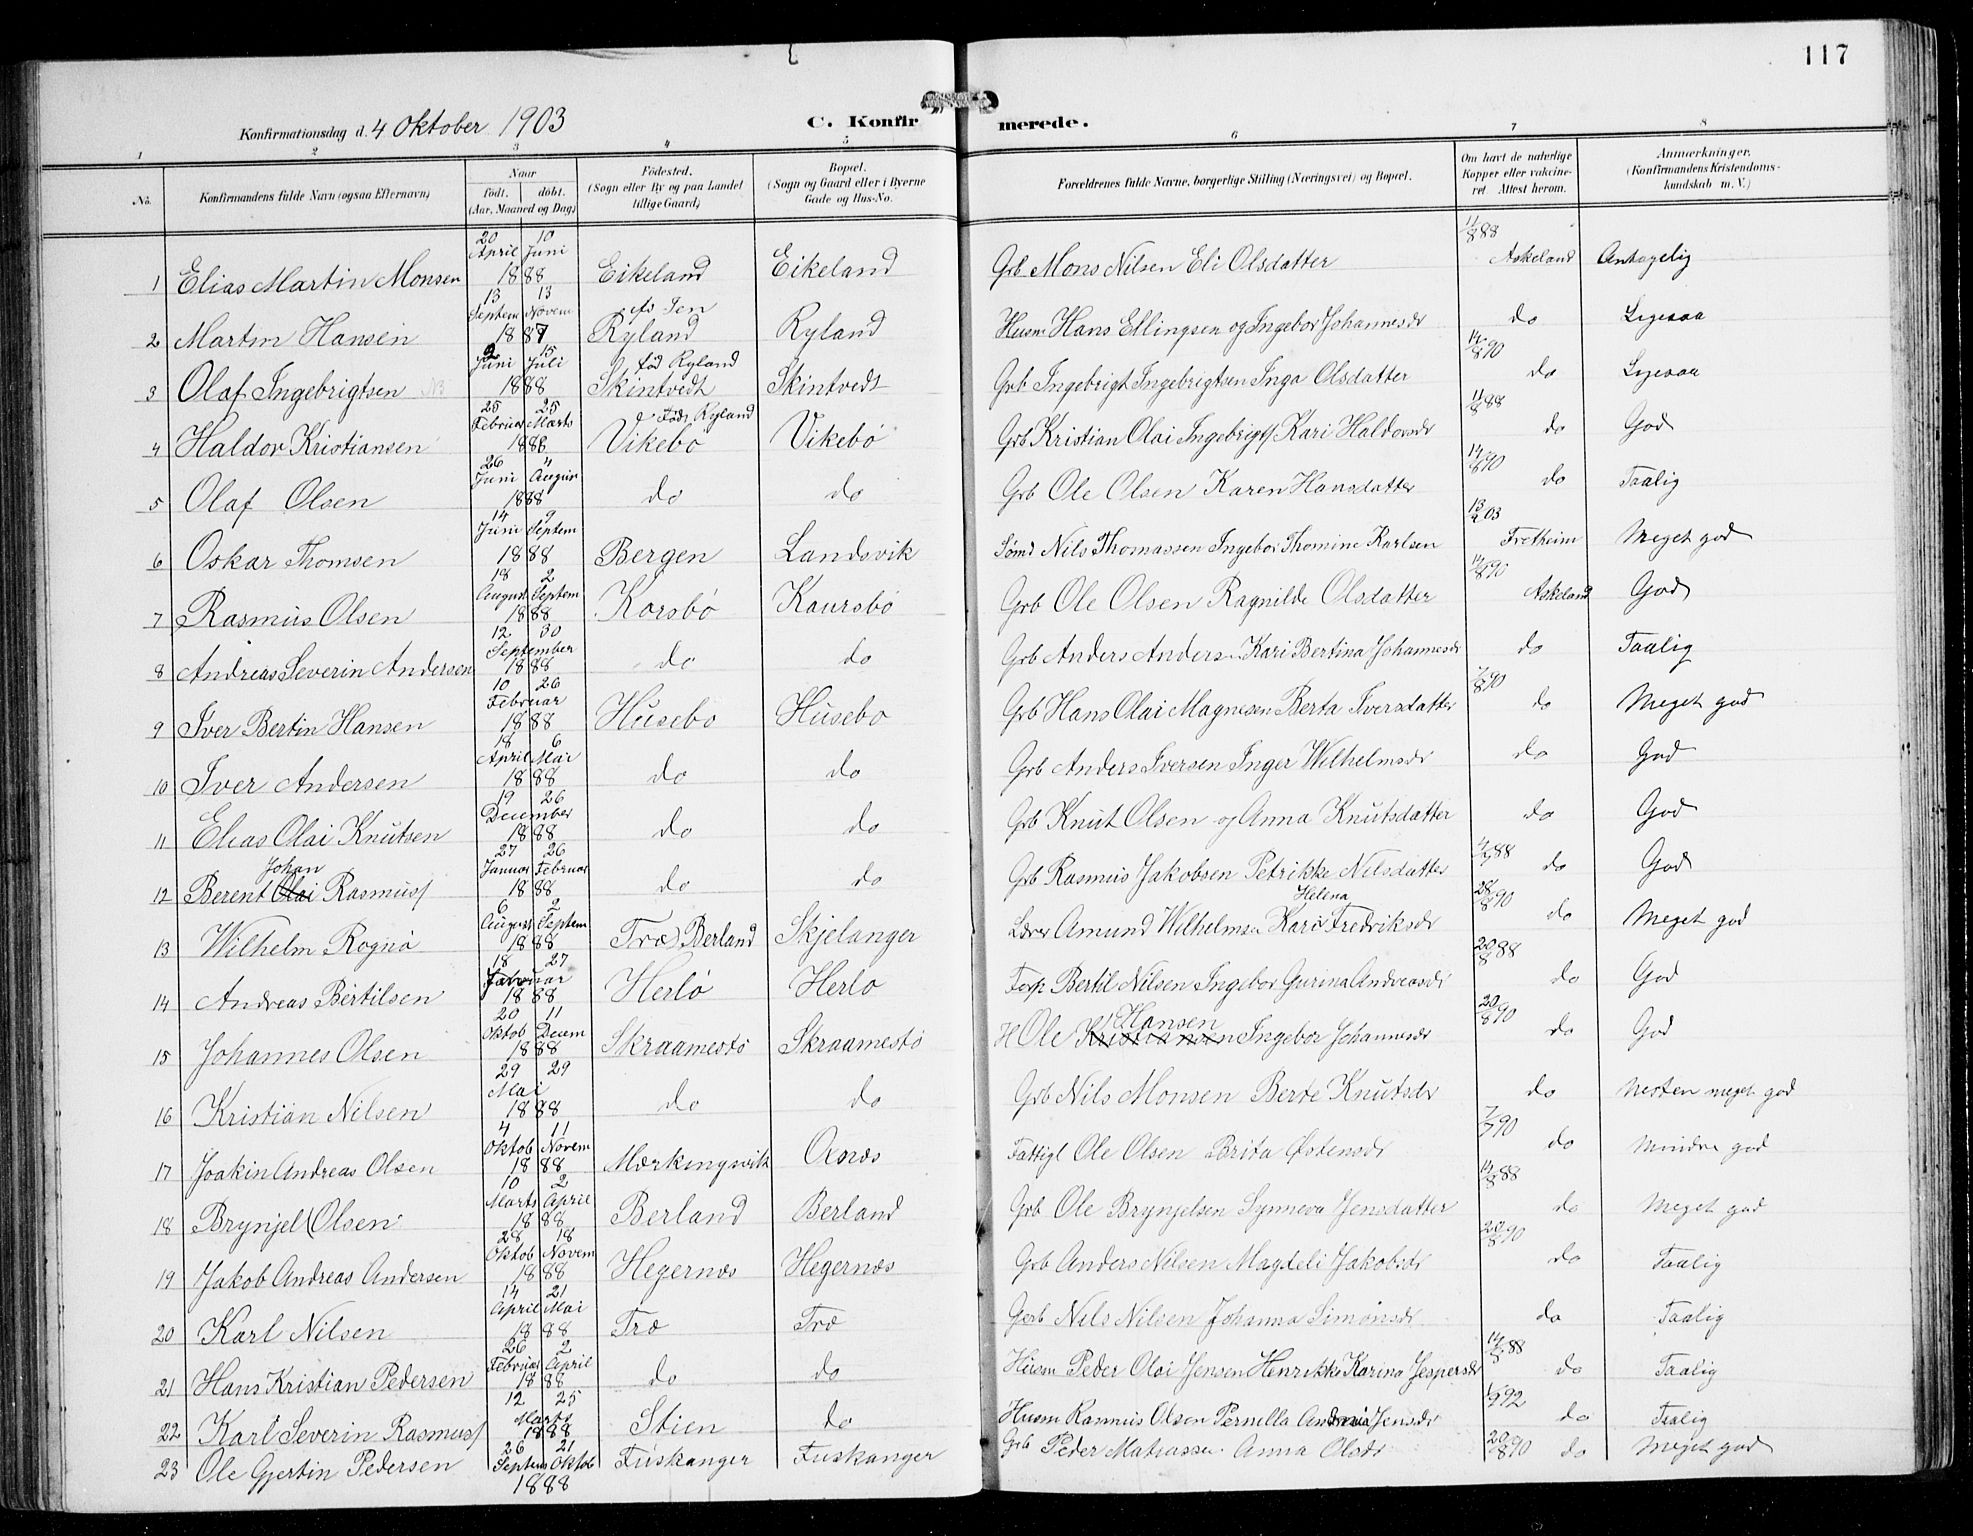 117
Konfirmationsdag d. 4 Oktober 1903 C. Konfirmerede.
1 2 3 4 5 6 7 8
No. Konfirmandens fulde Navn (ogsaa Efternavn) Naar født. døbt. (Aar, Maaned og Dag) Födested. (Sogn eller By og paa Landet tillige Gaard) Bopæl. (Sogn og Gaard eller i Byerne Gade og Hus-No. Forældrenes fulde Navne, borgerlige Stilling (Næringsvei) og Bopæl. Om havt de naturlige Kopper eller vakcineret Attest herom. Anmærkninger. (Konfirmandens Kristendomskundskab m. V.)
1 Elias Martin Monsen 20 April 10 Juni 1888 Eikeland Eikeland Grb Mons Nilsen Eli Olsdatter 11/8 88 Askeland Antagelig
2 Martin Hansen 13 Septem 13 Novem 1887 Ryland Ryland Husm Hans Ellingsen og Ingebor Johannesdr do Ligesaa
3 Olaf Ingebrigtsen NB 2 Juni 15 Juli 1888 fød Ryland Skintvedt Skintvedt Grb Ingebrigt Ingebrigtsen Inga Olsdatter 14/8 90 do Ligesaa
4 Haldor Kristiansen 25 Februar 25 Marts 1888 Fød Ryland Vikebø Vikebø Grb Kristian Olai Ingebrigts/ Kari Haldorsdr 11/8 88 do God
5 Olaf Olsen 26 Juni 4 August 1888 do do Grb Ole Olsen Karen Hansdatter 14/8 90 do Taalig
6 Oskar Thomsen 14 Juni 9 Septem 1888 Bergen Landsvik Sømd Nils Thomassen Ingebor Thomine Karlsen 13/9 03 Fretheim Meget god
7 Rasmus Olsen 18 August 2 Septem 1888 Korsbø Kaursbø Grb Ole Olsen Ragnilde Olsdatter 14/8 90 Askeland God
8 Andreas Severin Andersen 12 30 September 1888 do do Grb Anders Anders. Kari Bertina Johannesdr do Taalig
9 Iver Bertin Hansen 10 26 Februar 1888 Husebo Husebo Grb Hans Olai Magnesen Berta Iversdatter 7/8 90 do Meget god
10 Iver Andersen 18 April 6 Mai 1888 do do Grb Anders Iversen Inger Wilhelmsdr do God
11 Elias Olai Knutsen 19 26 December 1888 do do Grb Knut Olsen og Anna Knutsdatter do God
12 Berent Olai Johan Rasmus/ 27 Januar 26 Februar 1888 do do Grb Rasmus Jakobsen Petrikke Nilsdatter 88 do God
13 Wilhelm Rognø 6 August 2 Septem 1888 Træ Berland Skjelanger Lærer Amund Wilhelmsen Kari Helena Fredriksdr 28/8 90 do Meget god
14 Andreas Bertilsen 18 27 Januar 1888 Herlø Herlo Forp Bertil Nilsen Ingebor Gurina Andreasdr 20/8 88 do God
15 Johannes Olsen 20 Oktob 11 Decem 1888 Skraamestø Skraamestø H Ole Kristiansen Hansen Ingebor Johannesdr 20/8 90 do God
16 Kristian Nilsen 29 29 Mai 1888 do do Grb Nils Monsen Berte Knutsdr do Nesten meget god
17 Joakin Andreas Olsen 4 Oktob 11 Novem 1888 Mærkingsvik Oxnæs Fattigl Ole Olsen Brita Østensdr 7/7 90 do Mindre god
18 Brynjel Olsen 10 Marts 2 April 1888 Berland Berland Grb Ole Brynjelsen Synneva Jensdatter 14/8 88 do Meget god
19 Jakob Andreas Andersen 28 Oktob 18 Novem 1888 Hegernæs Hegernæs Grb Anders Nilsen Magdeli Jakobsdr 20/8 90 do Taalig
20 Karl Nilsen 14 April 21 Mai 1888 Træ Træ Gerb Nils Nilsen Johanna Simonsdr do Taalig
21 Hans Kristian Pedersen 26 Februar 2 April 1888 do do Husm Peder Olai Jensen Henrikke Karina Jespersdr 88 do Taalig
22 Karl Severin Rasmus/ 12 25 Marts 1888 Stien do Husm Rasmus Olsen Pernilla Andrea Jensdr 92 do Taalig
23 Ole Gjertin Pedersen 26 Septem 21 Oktob 1888 Fuskanger Fuskanger Grb Peder Matiassen. Anna Olsdr 20/8 90 do Meget god